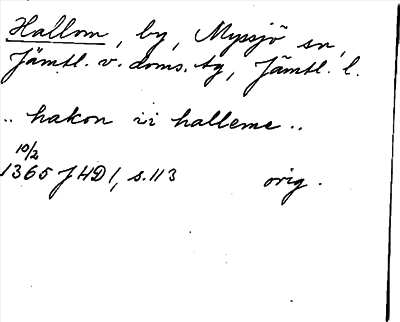 Hallom, by, Myssjö sn,
Jämtl. v. doms. tg, Jämtl. l.
.. hakon i i halleme ..
10/2
1365 JHD 1, s. 113 orig.